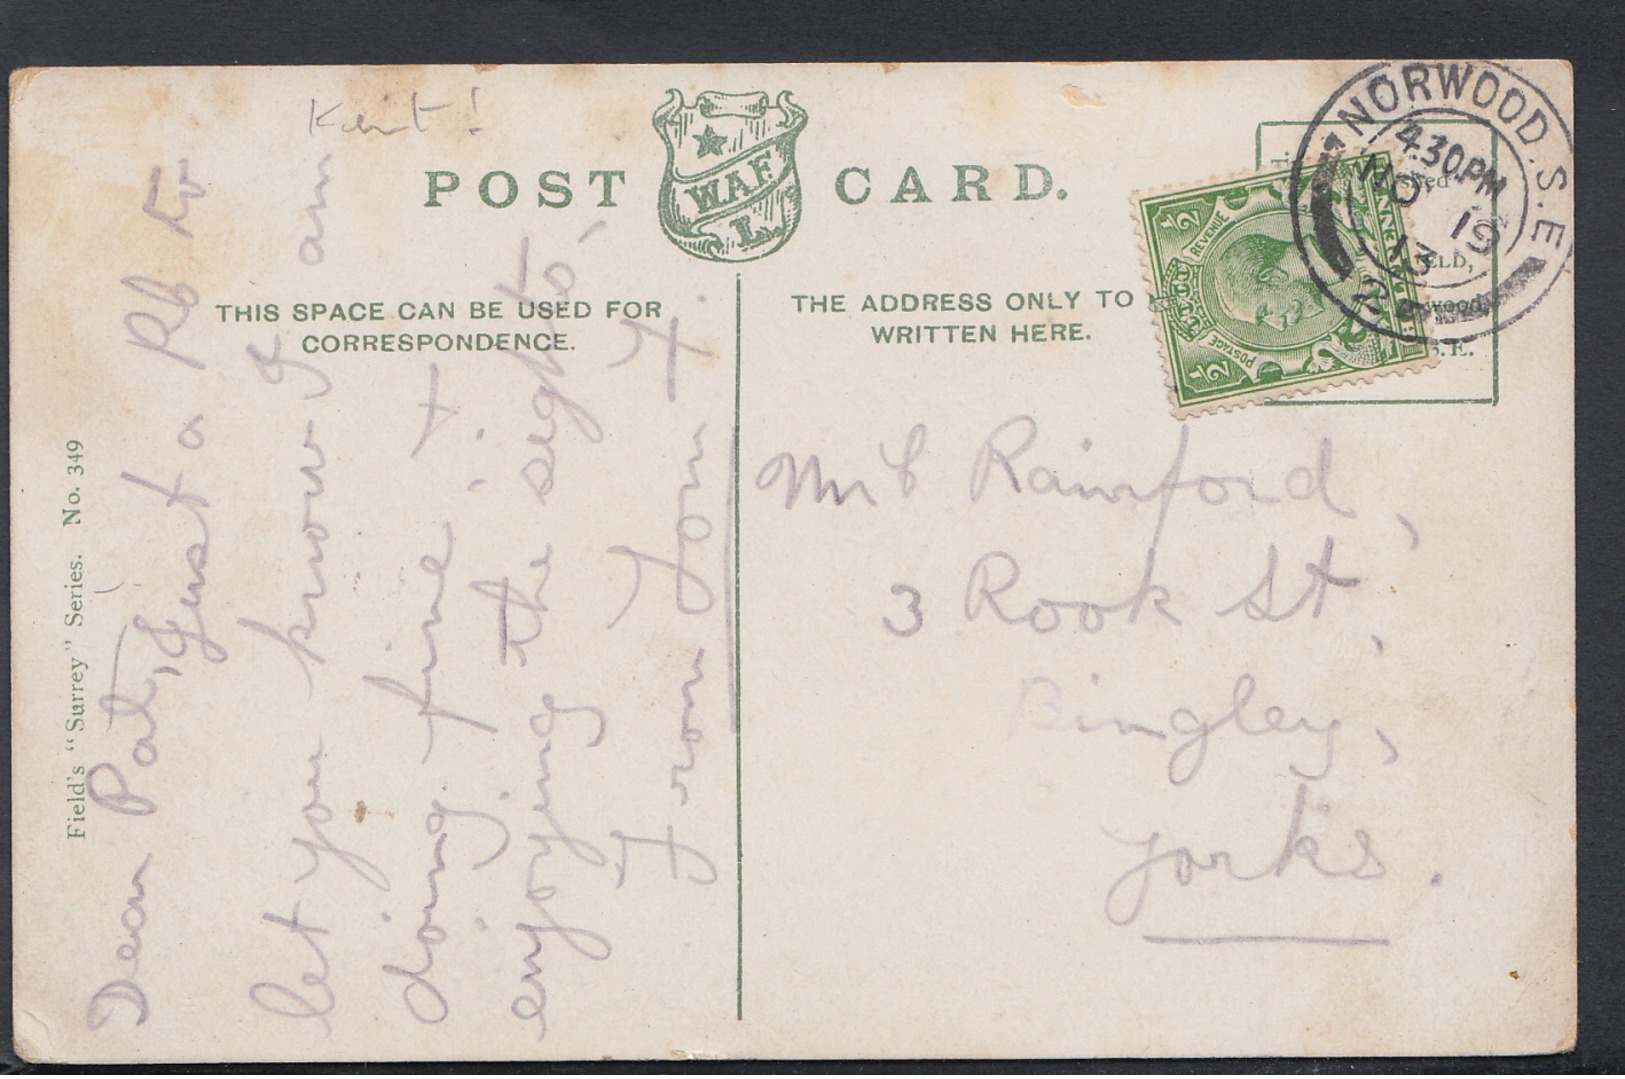 Kent!
POST CARD.
W.A.F.
L.
THIS SPACE CAN BE USED FOR
CORRESPONDENCE.
THE ADDRESS ONLY TO
WRITTEN HERE.
Field's "Surrey" Series. No. 349
Dear Pat, Just a Pb to
let you know I am
doing fine &
enjoying the sights,
From Tom X.
NORWOOD. S.E.
4.30PM
NO 19
13
2
REVENUE
POSTAGE
½
½
shed
ELD,
rwood,
S.E.
Mr C Rainford,
3 Rook St,
Bingley,
Yorks.